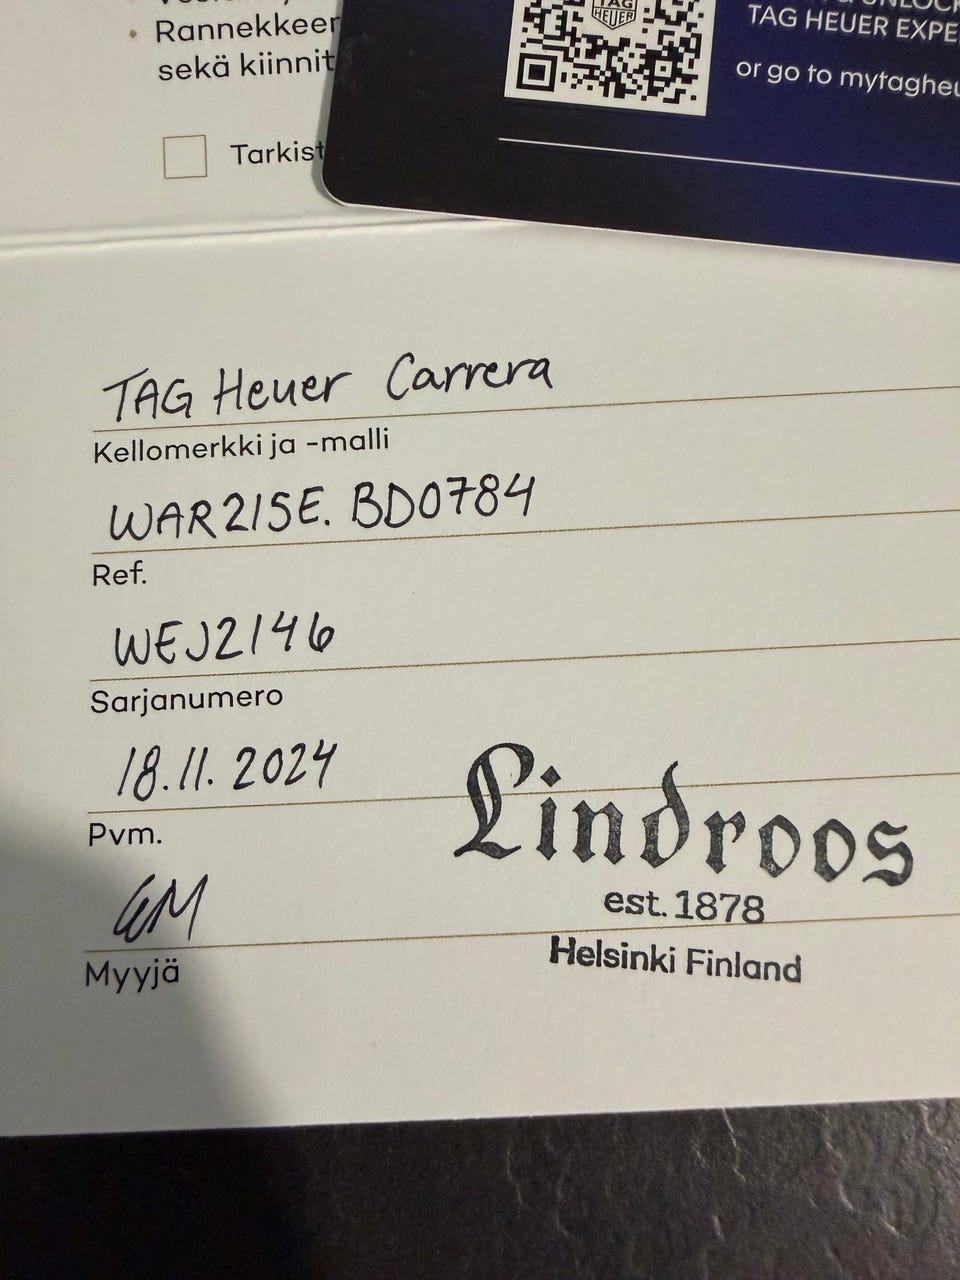 Rannekkeen
sekä kiinnit
Tarkist
TAG
HEUER
TAG HEUER EXPE
or go to mytagheu
TAG Heuer Carrera
Kellomerkki ja -malli
WAR215E. BD0784
Ref.
WEJ2146
Sarjanumero
18.11.2024
Pvm.
Lindroos
est. 1878
Helsinki Finland
Myyjä